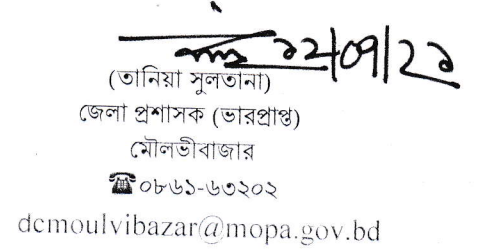 ১২/০৭/২১
(তানিয়া সুলতানা)
জেলা প্রশাসক (ভারপ্রাপ্ত)
মৌলভীবাজার
☎০৮৬১-৬৩২০২
dcmoulvibazar@mopa.gov.bd